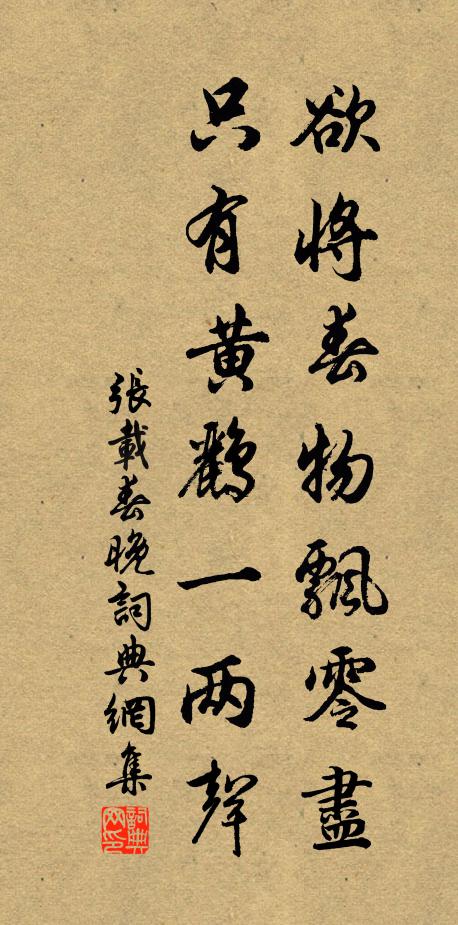 欲将春物飄零盡
只有黄鸝一两聲
張載春晚詞典網集
詞典網印